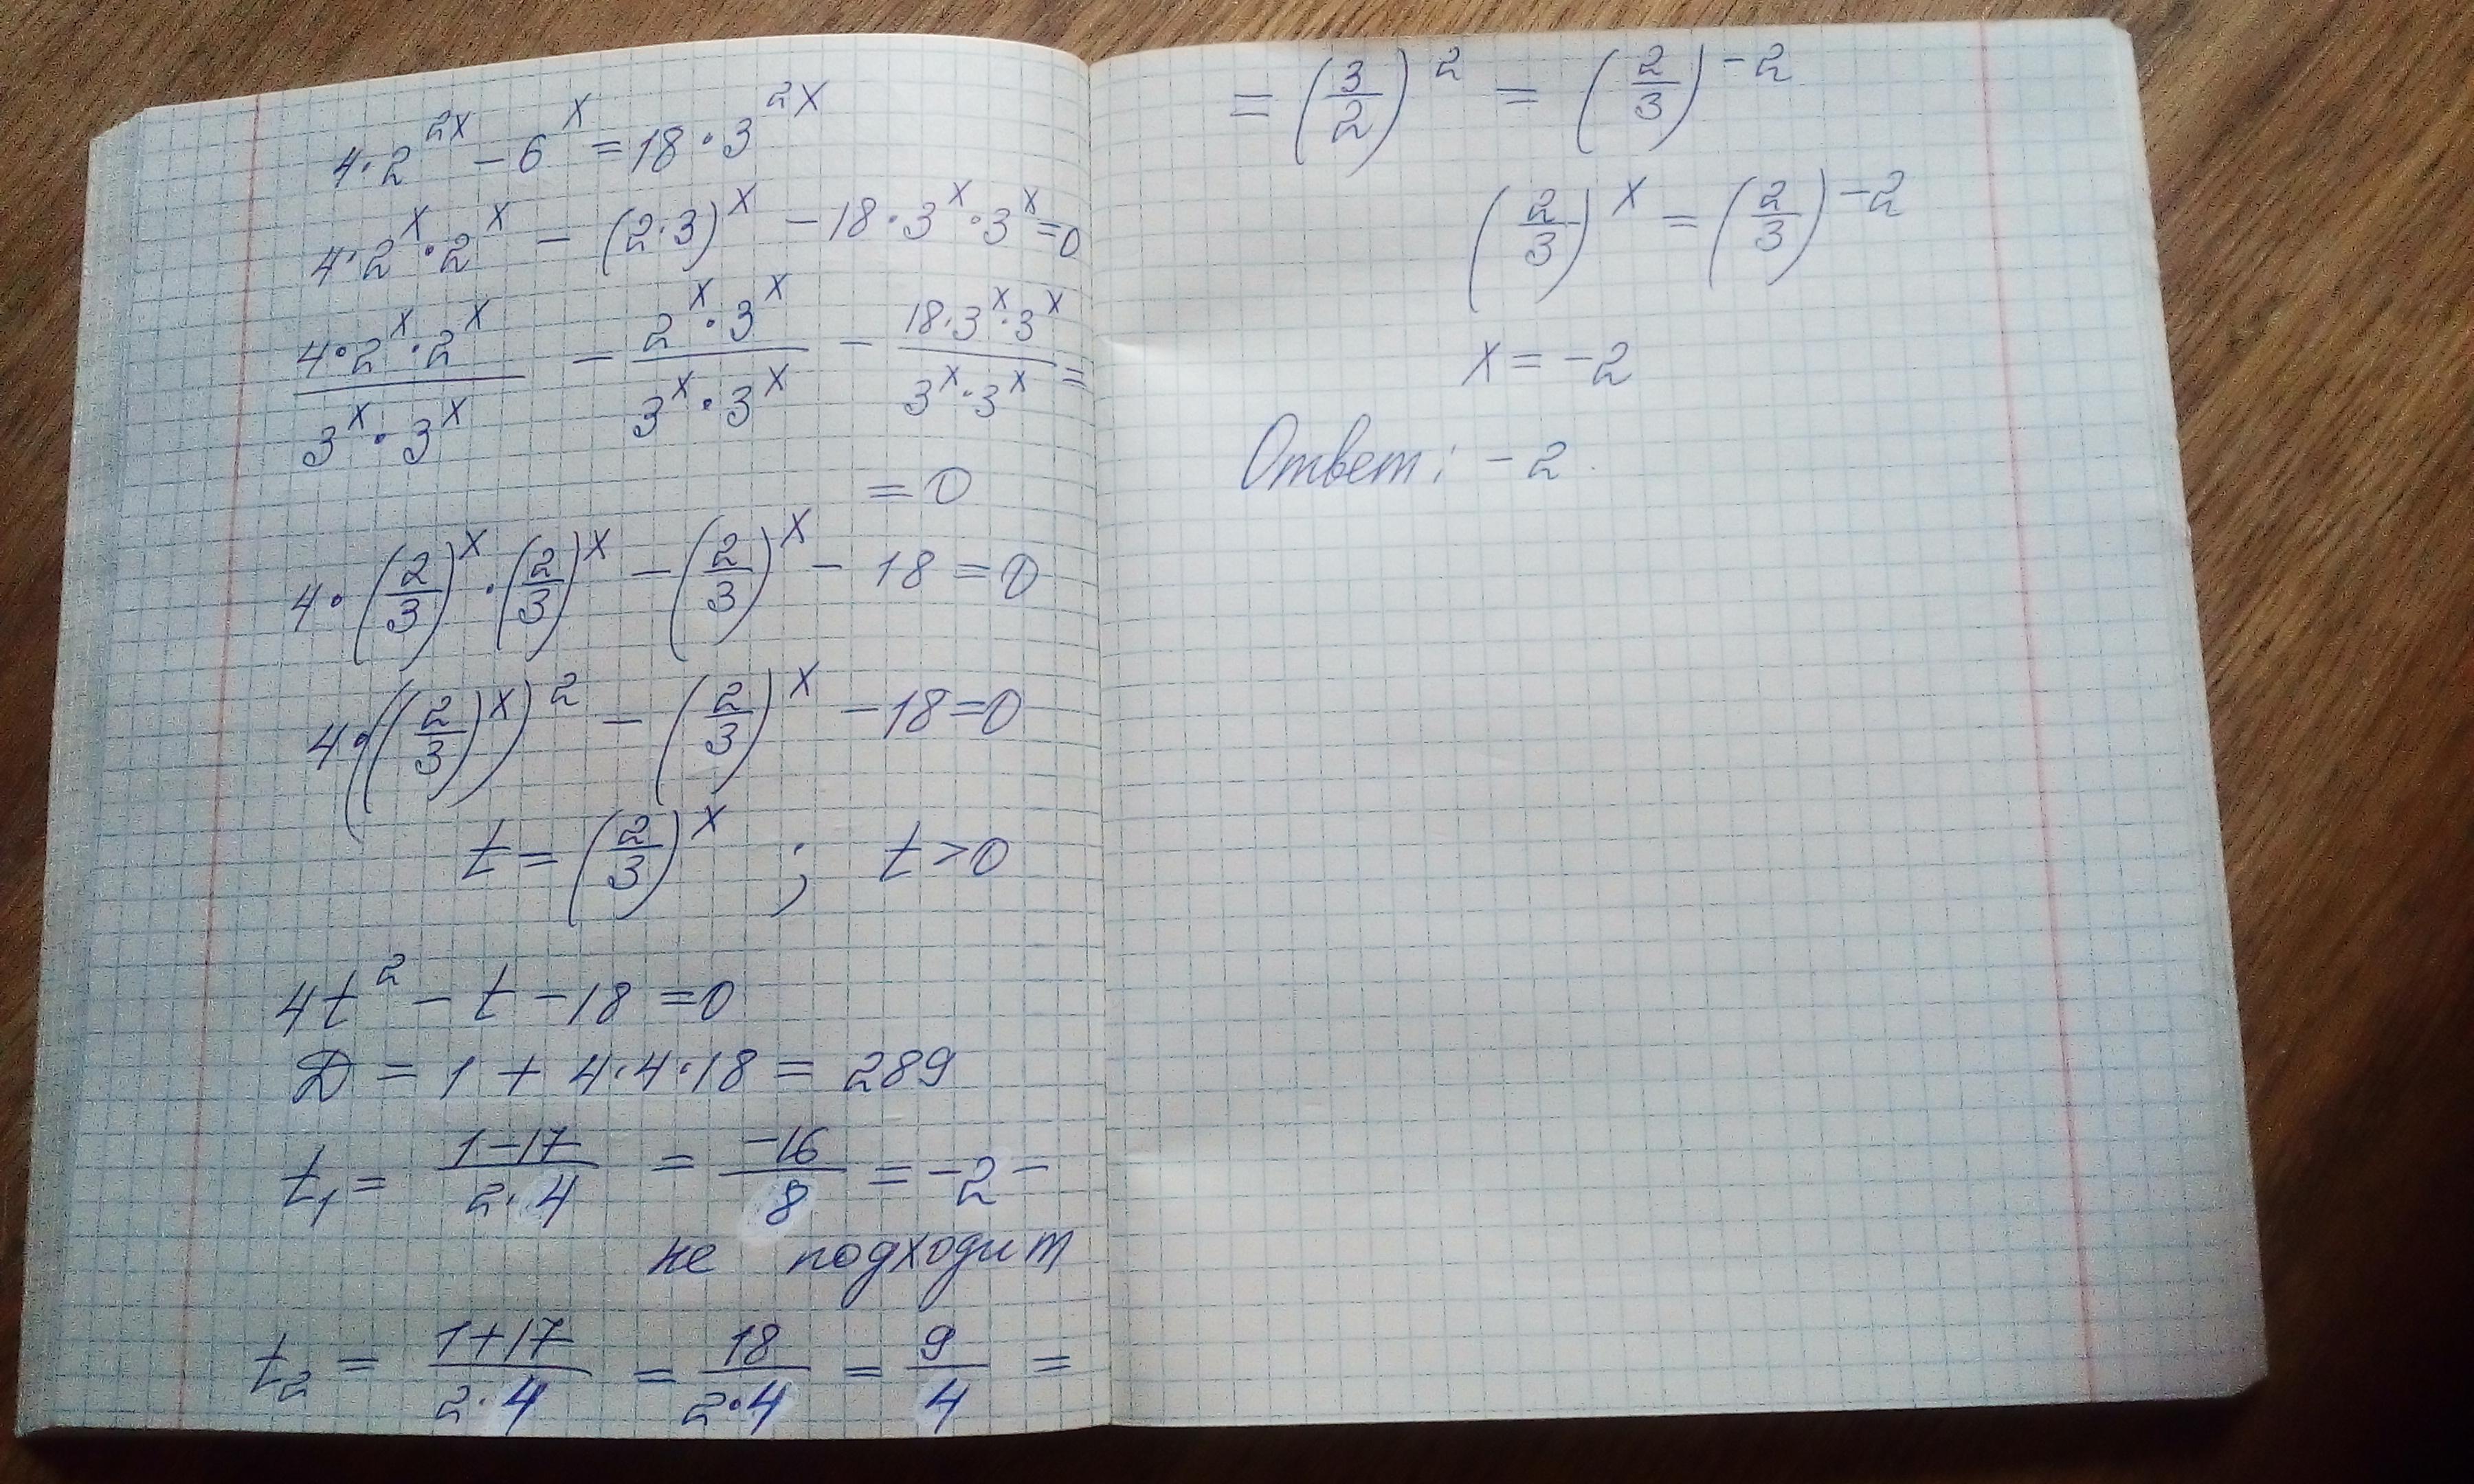 4·2^{2x} - 6^x = 18·3^{2x}
4·2^x·2^x - (2·3)^x - 18·3^x·3^x = 0
\frac{4·2^x·2^x}{3^x·3^x} - \frac{2^x·3^x}{3^x·3^x} - \frac{18·3^x·3^x}{3^x·3^x} =
= 0
4·(\frac{2}{3})^x·(\frac{2}{3})^x - (\frac{2}{3})^x - 18 = 0
4·((\frac{2}{3})^x)^2 - (\frac{2}{3})^x - 18 = 0
t = (\frac{2}{3})^x ; t > 0
4t^2 - t - 18 = 0
D = 1 + 4·4·18 = 289
t_1 = \frac{1-17}{2·4} = \frac{-16}{8} = -2 -
не подходит
t_2 = \frac{1+17}{2·4} = \frac{18}{2·4} = \frac{9}{4} =
= (\frac{3}{2})^2 = (\frac{2}{3})^{-2}
(\frac{2}{3})^x = (\frac{2}{3})^{-2}
x = -2
Ответ: -2.